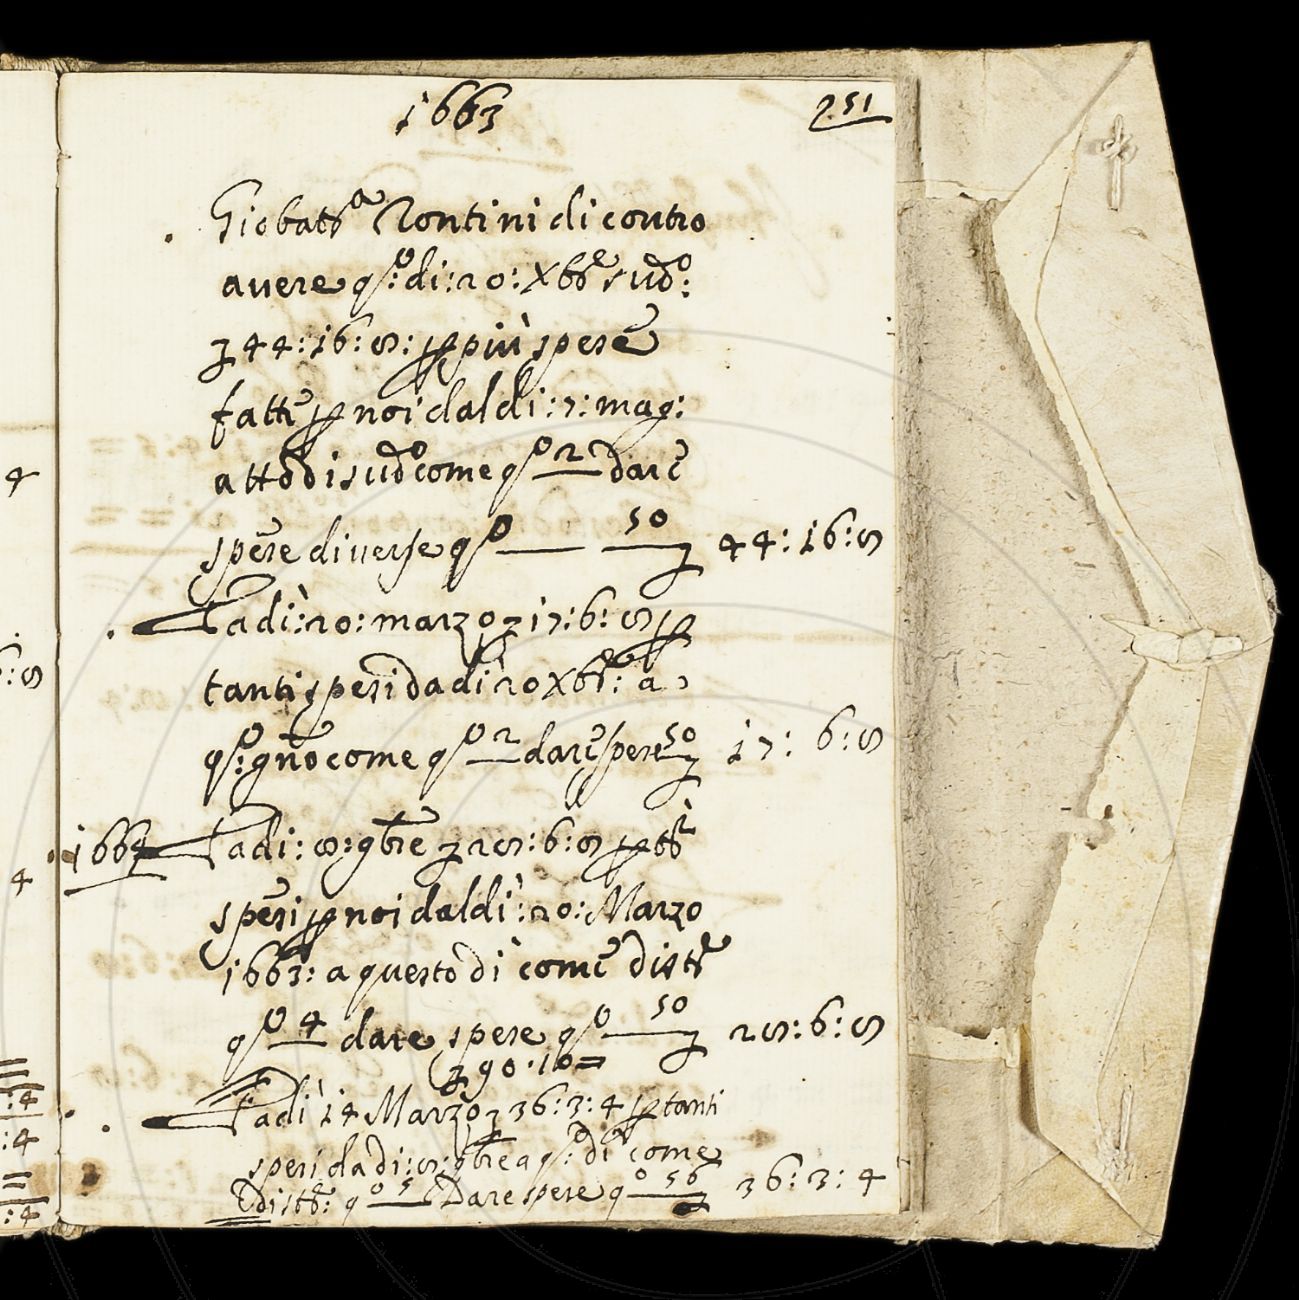 1663
251
Giobatta Rontini di contro
avere qo: di: 20: Xbre sudo:
ʒ 44: 16: 8: p più spese
fatte p noi dal dì: 7: mag:
atto dì sudo come qo 2 dare
spese diverse qo 50 ʒ 44: 16: 8
E adì: 20: marzo ʒ 17: 6: 8 p
tanti spesi da dì 20 Xbre: a
qo: gno come qo 2 dare spese 50 ʒ 17: 6: 8
1664 E adi: 8: 9bre ʒ 28: 6: 8 p tti
spesi p noi dal dì: 20: Marzo
1663: a questo dì come disto
qo 4 dare spese qo 50 ʒ 28: 6: 8
ʒ 90: 10=
E adì 14 Marzo ʒ 36: 3: 4 p tanti
spesi da di: 8: 9bre a qo: dì come
disto: qo 5 Dare spese qo 56 ʒ 36: 3: 4